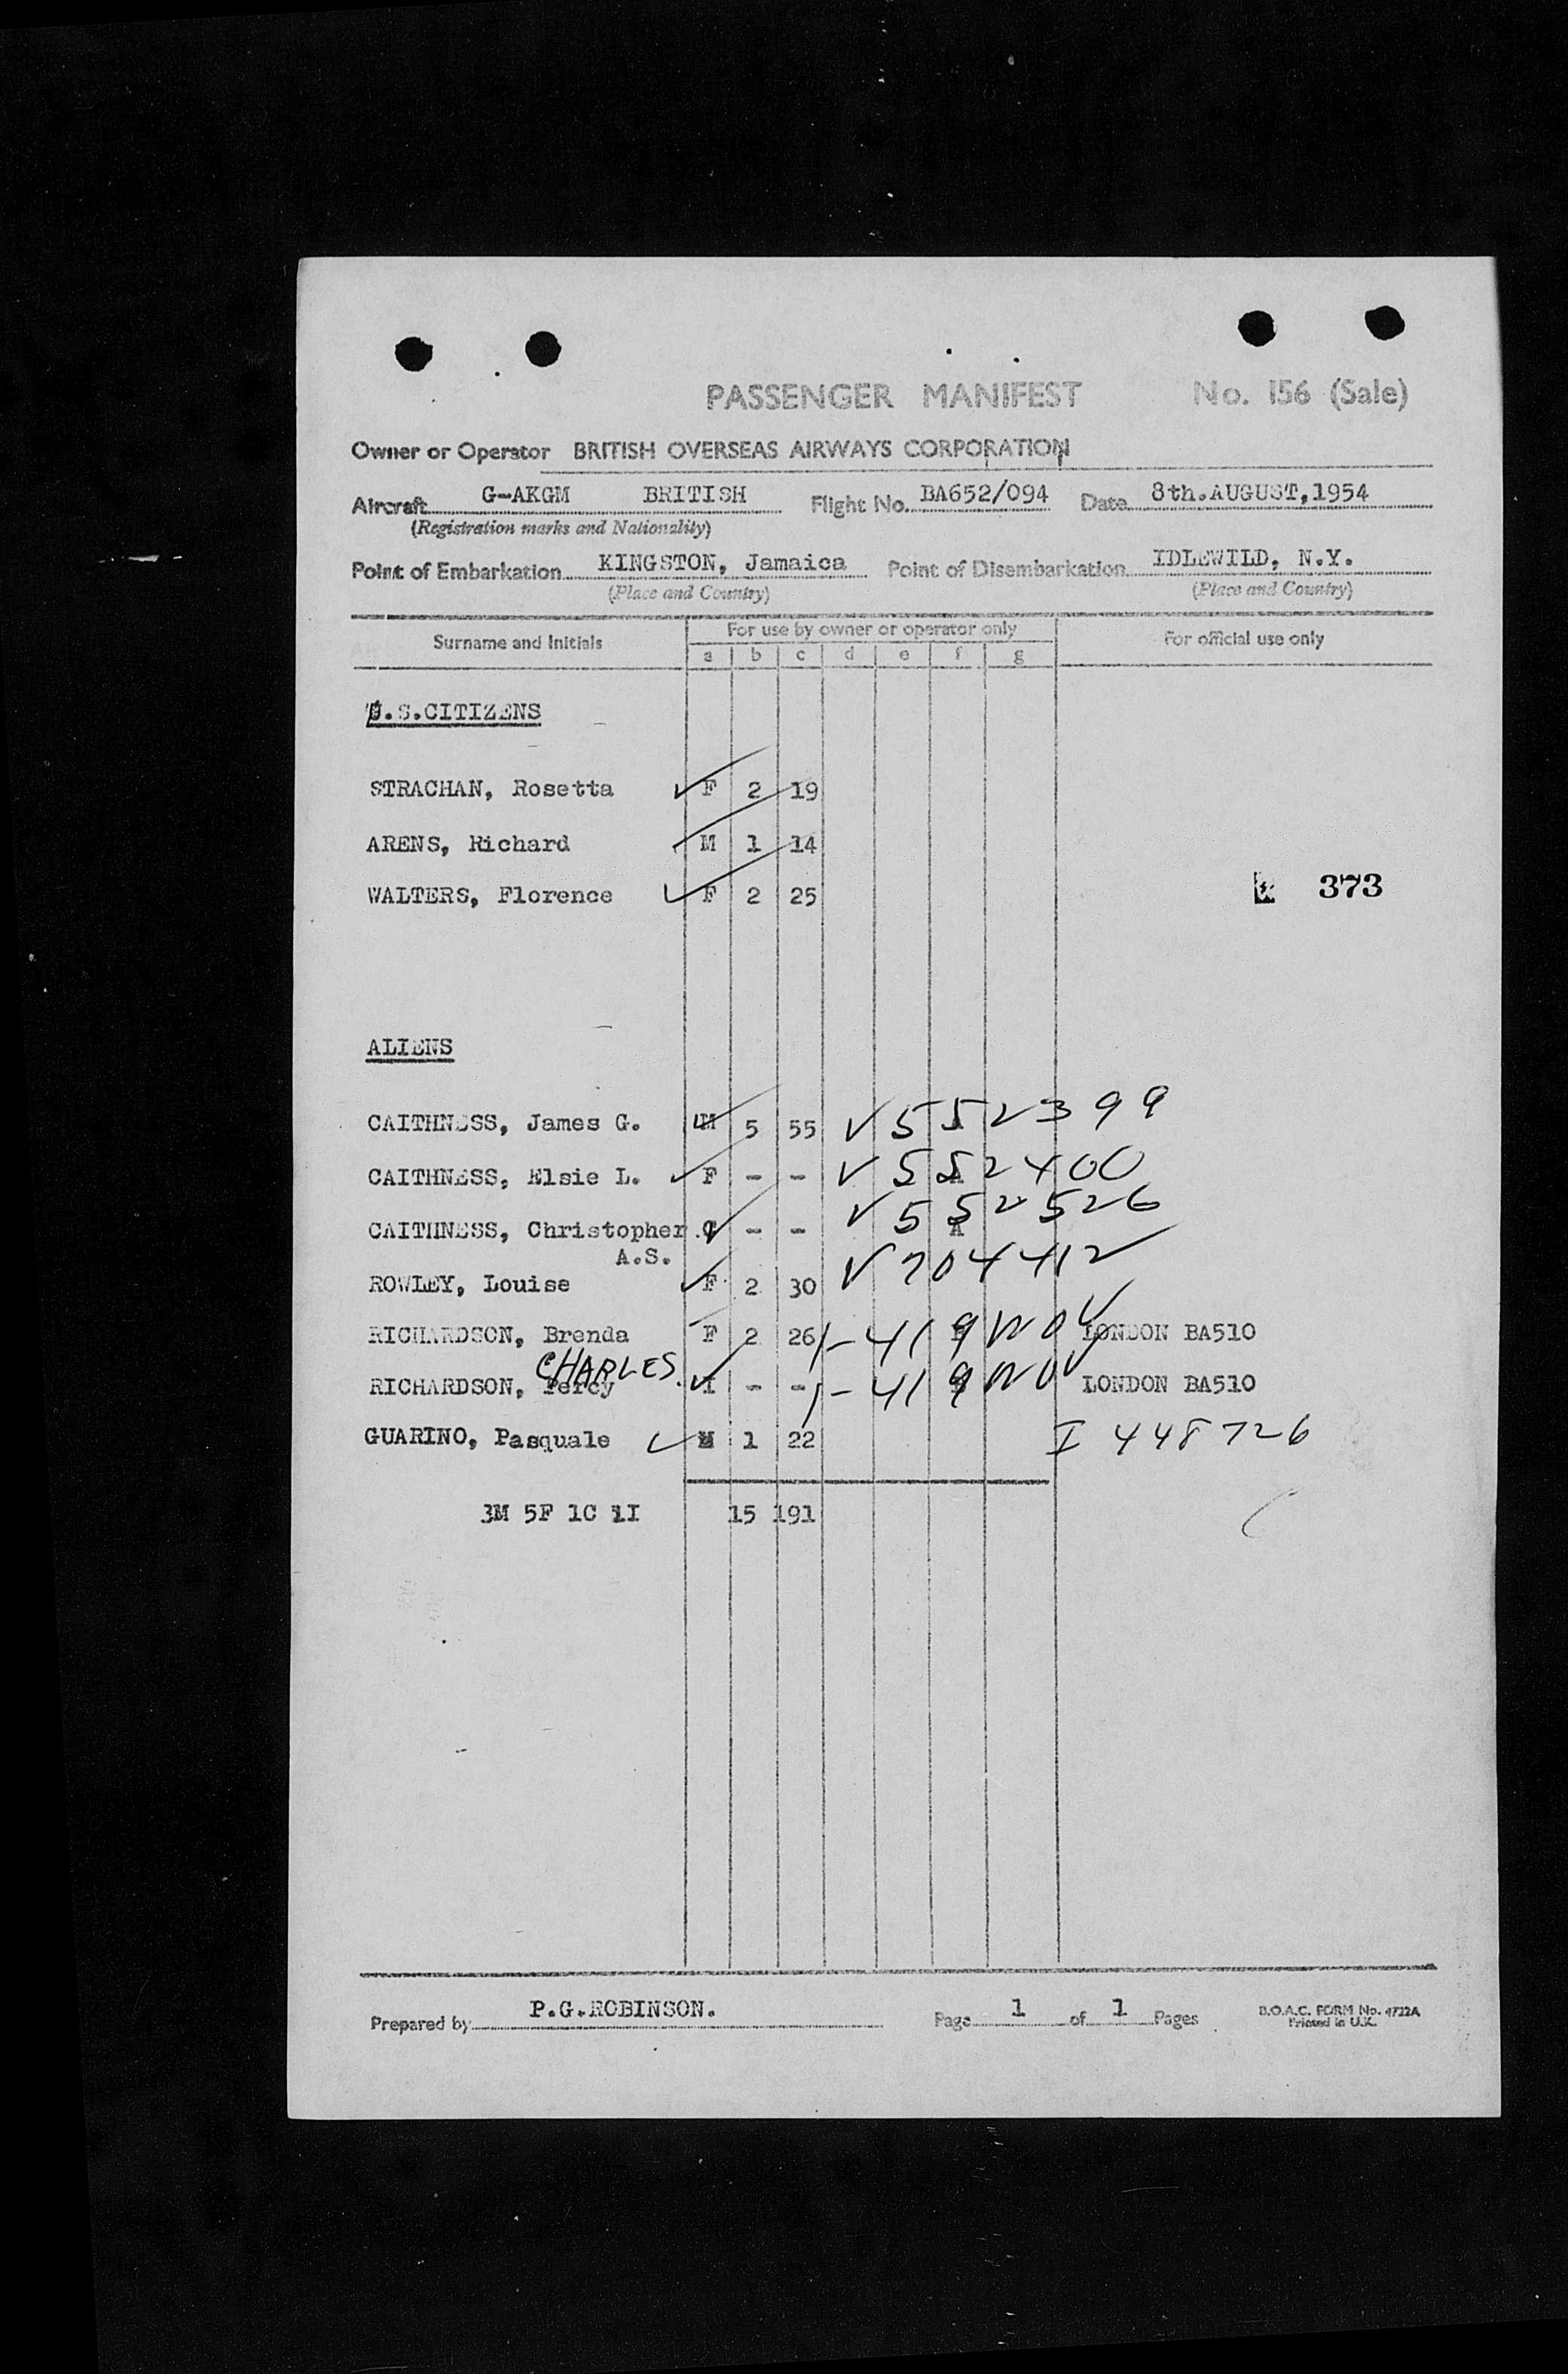 PASSENGER MANIFEST No. 156 (Sale)
Owner or Operator BRITISH OVERSEAS AIRWAYS CORPORATION
Aircraft G-AKGM BRITISH Flight No. BA652/094 Date 8th.AUGUST,1954
(Registration marks and Nationality)
Point of Embarkation KINGSTON, Jamaica Point of Disembarkation IDLEWILD, N.Y.
(Place and Country) (Place and Country)
Surname and Initials For use by owner or operator only For official use only
a b c d e f g
U.S.CITIZENS
STRACHAN, Rosetta F 2 19
ARENS, Richard M 1 14
WALTERS, Florence F 2 25 373
ALIENS
CAITHNESS, James G. M 5 55 V 552399
CAITHNESS, Elsie L. F - - V 552400
CAITHNESS, Christopher C - - V 552526
A.S.
ROWLEY, Louise F 2 30 V 704412
RICHARDSON, Brenda F 2 26 1-419 NOV LONDON BA510
CHARLES
RICHARDSON, Percy I - - 1-419 NOV LONDON BA510
GUARINO, Pasquale M 1 22 I 448726
3M 5F 1C 1I 15 191
Prepared by P.G.ROBINSON. Page 1 of 1 Pages B.O.A.C. FORM No. 4722A
Printed in U.K.